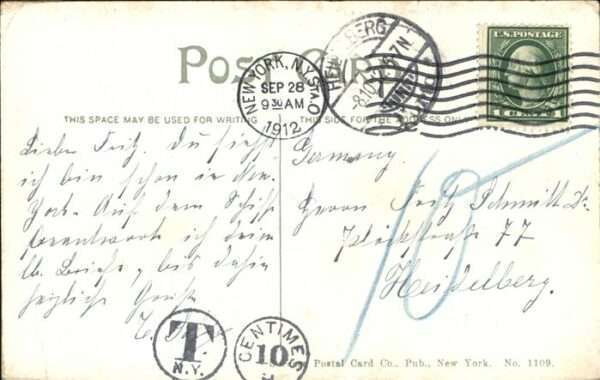 Post Card
NEW YORK, N.Y. STA.O
SEP 28
9 30 AM
1912
HEIDELBERG
8.10.12. 6-7N
U.S. POSTAGE
THIS SPACE MAY BE USED FOR WRITING
THIS SIDE FOR THE ADDRESS ONLY
Lieber Fritz. Du siehst
ich bin schon in New
York. Auf dem Schiff
beantworte ich deine
lb. Briefe, bis dahin
herzliche Grüße
Germany.
Herrn Fritz Schmitt
77
Heidelberg.
10
T
N.Y.
CENTIMES
10
Postal Card Co., Pub., New York. No. 1109.